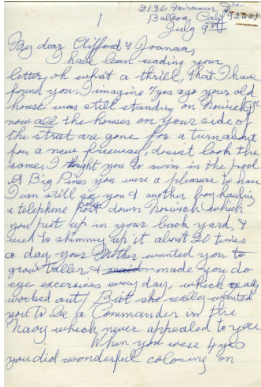 2136 Miramar
Balboa, Calif 92661
July 9th
1
My dear Clifford & Joanna,
I have been reading your
letter, oh what a thrill, that I have
found you. I imagine yrs ago your old
house was still standing on Norwich
now all the houses on your side of
the street are gone for a turn about
for a new freeway doesn't look the
same, I taught you to swim in the pool
at Big Pines you were a pleasure to have
I can still see you & another boy hauling
a telephone pole down Norwich which
you put up in your back yard, &
used to shimmy up it about 20 times
a day, your Mother wanted you to
grow taller & made you do
eye excersises every day, which really
worked out, But she really wanted
you to be a Commander in the
Navy which never appealed to you
When you were 4 yrs
you did wonderful coloring on